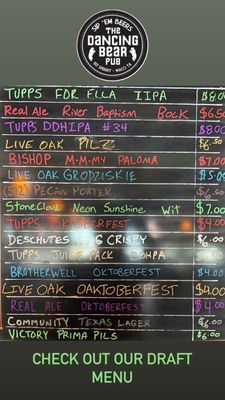 SIP 'EM BEERS
THE
DANCING
BEAR
PUB
TUPPS FOR ELLA IIPA $8.00
Real Ale River Baptism Bock $6.50
TUPPS DDHIPA #34 $8.00
LIVE OAK PILZ $6.50
BISHOP M-M-MY PALOMA $7.00
LIVE OAK GRODZISKIE $5.00
(512) PECAN PORTER $6.50
StoneCloud Neon Sunshine Wit $7.00
TUPPS OKTOBERFEST $4.00
DESCHUTES CRISPY $6.00
TUPPS JUICE PACK DDHPA
BROTHERWELL OKTOBERFEST $4.00
LIVE OAK OAKTOBERFEST $4.00
REAL ALE OKTOBERFEST $4.00
COMMUNITY TEXAS LAGER $6.00
VICTORY PRIMA PILS $6.00
CHECK OUT OUR DRAFT
MENU